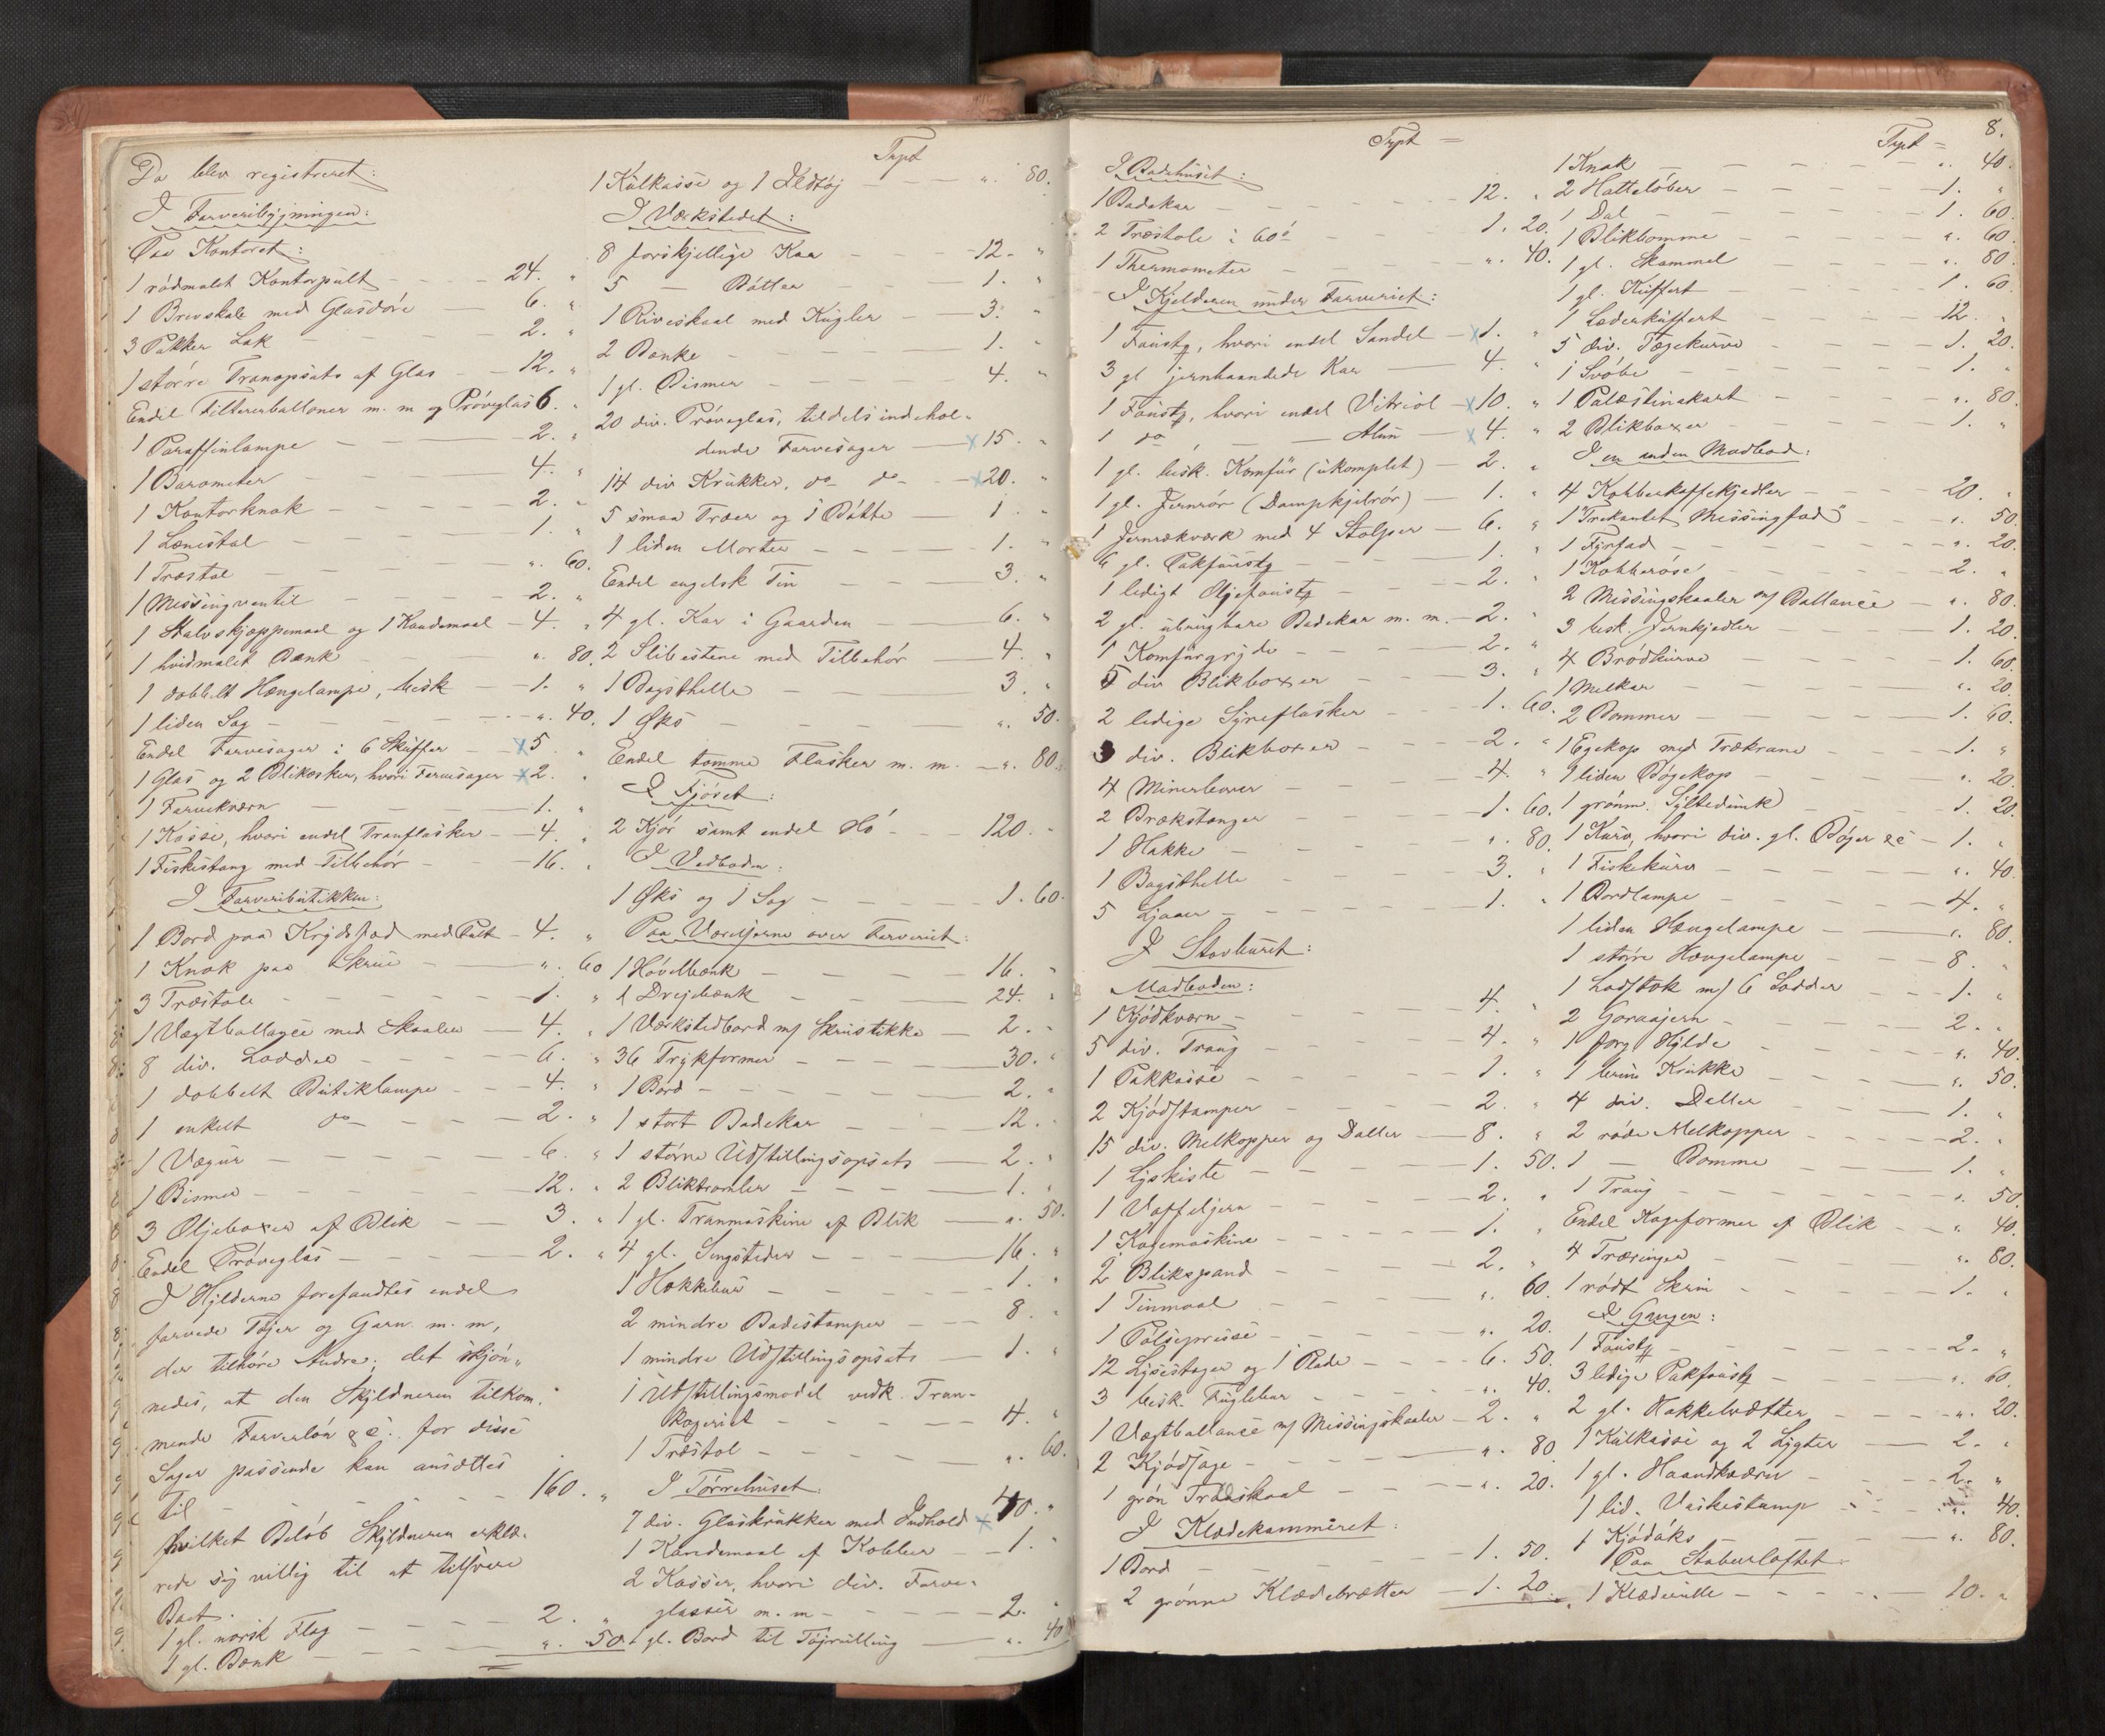 Da blev registreret:
I Farveribygningen:
Paa Kontoret:
1 rödmalet Kontorpult - 24. "
1 Brevskab med Glasdöre - 6. "
3 Pakker Lak - 2. "
1 större Tranopsats af Glas - 12. "
Endel Filtrerballoner m. m og Pröveglas 6. "
1 Paraffinlampe - 2. "
1 Barometer - 4. "
1 Kontorknak - 2. "
1 Lænestol - 1. "
1 Træstol - ". 60.
1 Messingventil - 2. "
1 Halvskjæppemaal og 1 Kandemaal - 4. "
1 hvidmalet Bænk - ". 80.
1 dobbelt Hængelampe, besk - 1. "
1 liden Sag - ". 40.
Endel Farvesager i 6 Skuffer - x 5 "
1 Glas og 2 Blikæsker, hvori Farvesager - x 2. "
1 Farvekværn - 1. "
1 Kasse, hvori endel Tranflasker - 4. "
1 Fiskestang med Tilbehör - 16. "
I Farveributikken:
1 Bord paa Krydsfod med Pult - 4. "
1 Knak paa Skrue - ". 60
3 Træstole - 1. "
1 Vægtballance med Skaaler - 4. "
8 div. Lodder - 6. "
1 dobbelt Butiklampe - 4. "
1 enkelt do - 2. "
1 Vægur - 6. "
1 Bismer - 12. "
3 Oljeboxer af Blik - 3. "
Endel Pröveglas - 2. "
I Hylderne forefandtes endel
farvede Töjer og Garn m. m,
der tilhöre Andre; det skjön-
nedes, at den Skyldneren tilkom-
mende Farverlön &c. for disse
Sager passende kan ansættes
til - 160. "
hvilket Belöb Skyldneren erklæ-
rede sig villig til at tilsvare
Boet.
1 gl. norsk Flag - 2. "
1 gl. Bænk - ". 50.
Tspt
1 Kulkasse og 1 Ildtöj - ". 80.
I Værkstedet:
8 forskjellige Kar - 12. "
5 — Bötter - 1. "
1 Riveskaal med Kugler - 3. "
2 Bænke - 1. "
1 gl. Bismer - 4. "
20 div. Pröveglas, tildels indehol-
dende Farvesager - x 15. "
14 div Krukker, do do - x 20. "
5 smaa Træer og 1 Bötte - 1 "
1 liden Morter - 1. "
Endel engelsk Tin - 3. "
4 gl. Kar i Gaarden - 6. "
2 Slibestene med Tilbehör - 4. "
1 Bagsthelle - 3. "
1 Öks - ". 50.
Endel tomme Flasker m. m. - ". 80.
I Fjöset:
2 Kjör samt endel Hö - 120. "
I Vedboden:
1 Öks og 1 Sag - 1. 60.
Paa Værelserne over Farveriet:
1 Hövelbænk - 16. "
1 Drejebænk - 24. "
1 Værkstedbord m/ Skruestikke - 2. "
36 Trykformer - 30. "
1 Bord - 2. "
1 stort Badekar - 12. "
1 större Udstillingsopsats - 2. "
2 Bliktromler - 1. "
1 gl. Tranmaskine af Blik - ". 50.
4 gl. Sengsteder - 16. "
1 Hækkebur - 1. "
2 mindre Badestamper - 8. "
1 mindre Udstillingsopsats - 1. "
1 Udstillingsmodel vedk. Tran-
kogeriet - 4. "
1 Træstol - ". 60.
I Törrehuset.
7 div. Glaskrukker med Indhold - x 10. "
1 Kandemaal af Kobber - 1. "
2 Kasser, hvori div. Farve-
glasser m. m - 2. "
1 gl. Bord til Töjrulling - ". 40
Tspt =
I Badehuset:
1 Badekar - 12. "
2 Træstole à 60 ö - 1. 20.
1 Thermometer - ". 40.
I Kjelderen under Farveriet:
1 Foustg, hvori endel Sandel - x 1. "
3 gl jernbaandede Kar - 4. "
1 Foustg, hvori endel Vitriol - x 10. "
1 do — Alun - x 4. "
1 gl. besk. Komfur (ukomplet) - 2. "
1 gl. Jernrör (Dampkjelrör) - 1. "
1 Jernrækværk med 4 Stolper - 6. "
6 gl. Pakfoustg - 1. "
1 ledigt Oljefoustg - 2. "
2 gl. ubrugbare Badekar m. m. - 2. "
1 Komfurgryde - 2. "
5 div Blikboxer - 3. "
2 ledige Syreflasker - 1. 60.
3 div. Blikboxer - 2. "
4 Minerborer - 4. "
2 Brækstænger - 1. 60.
1 Hakke - ". 80.
1 Bagsthelle - 3. "
5 Ljaaer - 1. "
I Stavburet:
Madboden:
1 Kjödkværn - 4. "
5 div. Traug - 4. "
1 Pakkasse - 1. "
2 Kjödstamper - 2. "
15 div. Melkopper og Daller - 8. "
1 Lyskiste - 1. 50.
1 Vaffeljern - 2. "
1 Kagemaskine - 1. "
2 Blikspand - 2. "
1 Tinmaal - ". 60.
1 Pölsepresse - ". 20.
12 Lysestager og 1 Plade - 6. 50.
3 besk. Fuglebur - ". 40.
1 Vægtballance m/ Messingskaaler - 2. "
2 Kjödsage - ". 80
1 grön Trædskaal - ". 20.
I Klædekammeret:
1 Bord - 1. 50.
2 grönne Klædebrætter - 1. 20.
8.
Tspt =
1 Knak - ". 40.
2 Hatteløber - 1. "
1 Dal - 1. 60.
1 Bliktromme - ". 60.
1 gl. Skammel - ". 80.
1 gl. Kuffert - 1. 60.
1 Læderkuffert - 12. "
5 div. Tægekurve - 1. 20.
1 Svöbe - 1. "
1 Palæstinakart - ". 80.
2 Blikboxer - 1. "
I en anden Madbod:
4 Kobberkaffekjedler - 20. "
1 "Trekantet Messingfad" - ". 50.
1 Fyrfad - ". 20.
1 Kobberöse - 2. "
2 Messingskaaler m/ Ballance - ". 80.
3 besk. Jernkjedler - 1. 20.
4 Brödkurve - 1. 60.
1 Melkar - ". 20.
2 Bommer - 1. 60.
1 Egekop med Trækrane - 1. "
1 liden Bögekop - ". 20.
1 grönm. Syltedunk - 1. 20.
1 Kurv, hvori div. gl. Böger &c - 1. "
1 Fiskekurv - ". 40.
1 Bordlampe - 4. "
1 liden Hængelampe - ". 80.
1 större Hængelampe - 8. "
1 Lodstok m/ 6 Lodder - 1. "
2 Goraajern - 2. "
1 forg Hylde - ". 40.
1 brun Krukke - ". 50.
4 div. Daller - 1. "
2 röde Melkopper - 2. "
1 — Bomme - 1. "
1 Traug - ". 50
Endel Kageformer af Blik - ". 40.
4 Træringer - ". 80.
1 rödt Skrin - 1. "
I Gangen:
1 Foustg - 2. "
3 ledige Pakfoustg - ". 60.
2 gl. Hakkebrætter - ". 20.
1 Kulkasse og 2 Lygter - 2. "
1 gl. Haandkværn - 2. "
1 lid. Vaskestamp - ". 40.
1 Kjödöks - ". 80.
Paa Staburloftet
1 Klæderulle - 10. "